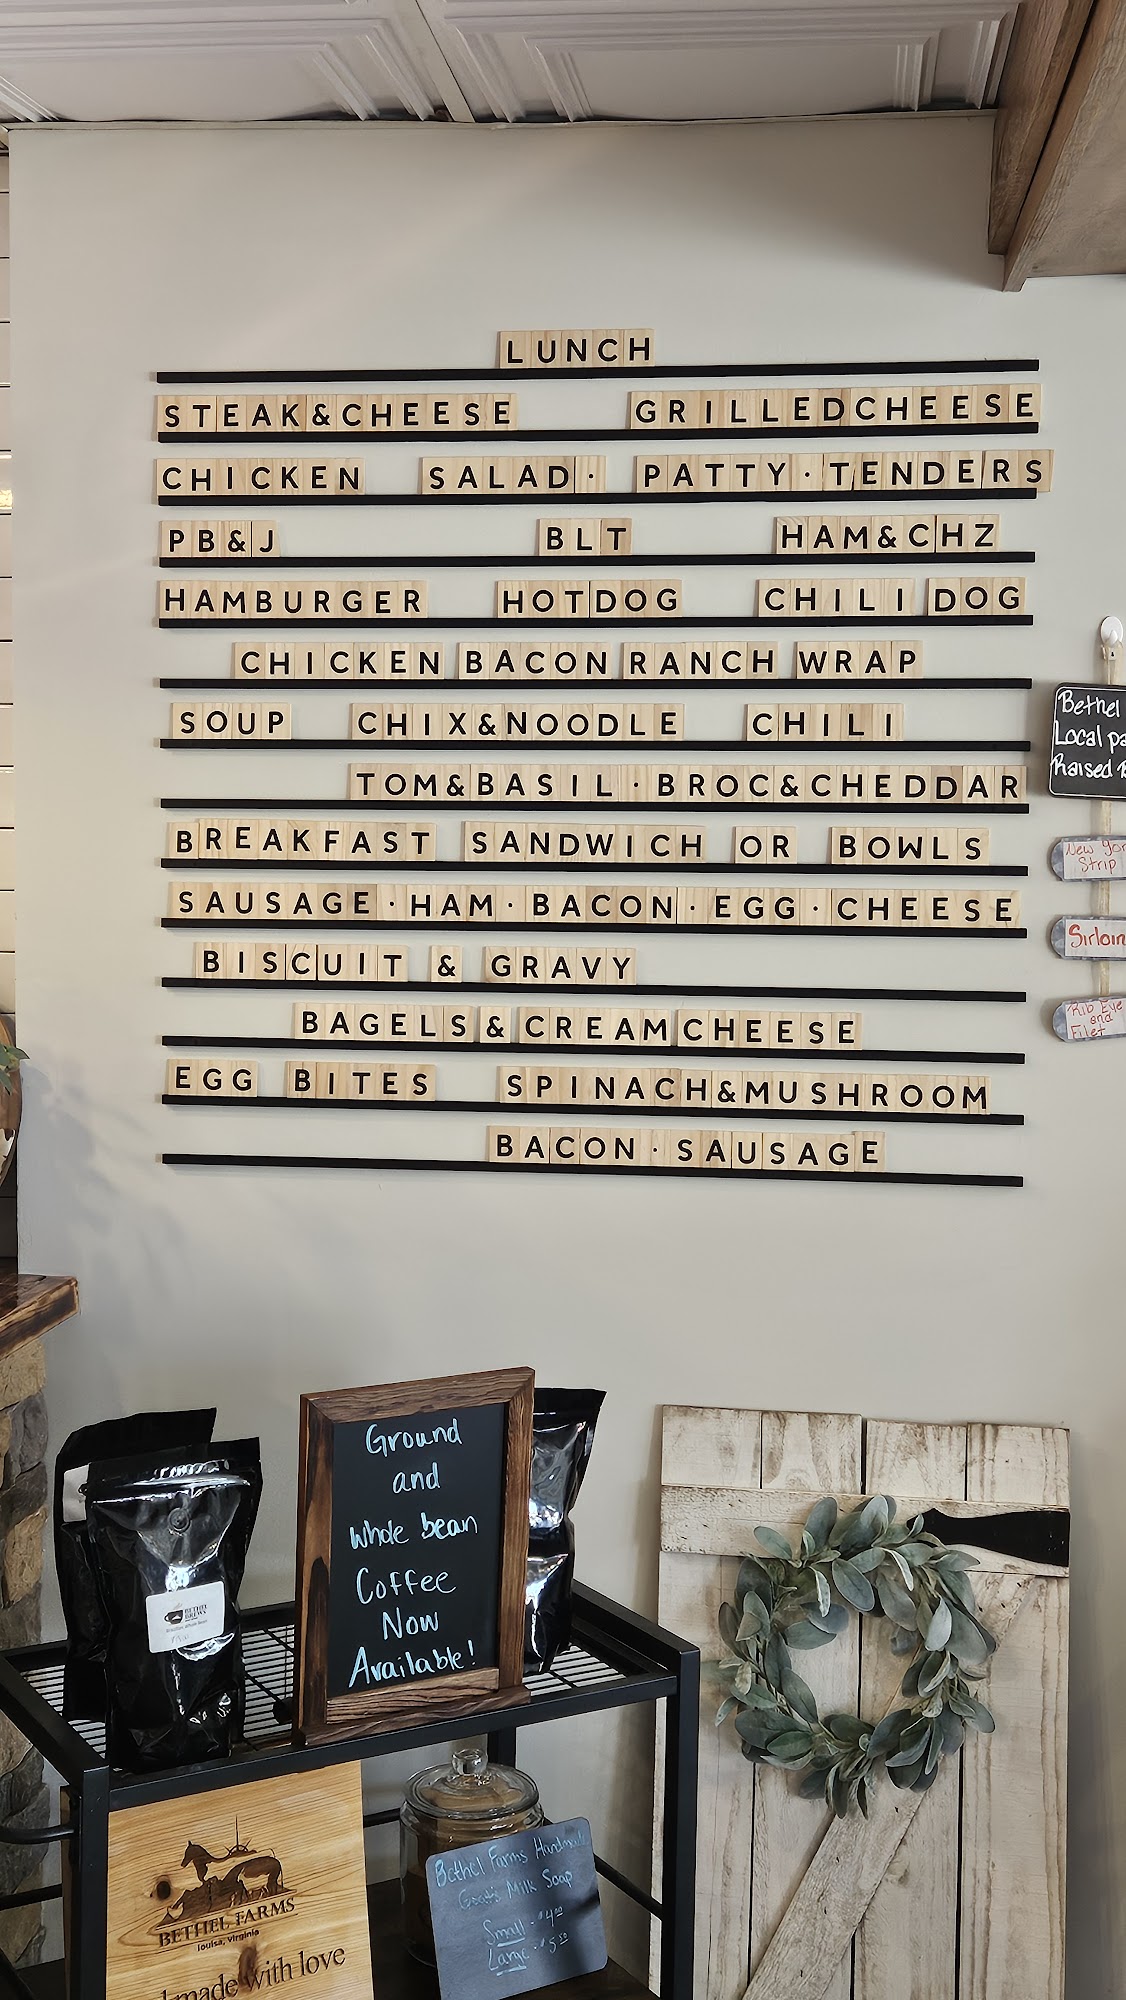 LUNCH
STEAK&CHEESE GRILLEDCHEESE
CHICKEN SALAD· PATTY·TENDERS
PB&J BLT HAM&CHZ
HAMBURGER HOTDOG CHILI DOG
CHICKEN BACON RANCH WRAP
SOUP CHIX&NOODLE CHILI
TOM&BASIL·BROC&CHEDDAR
BREAKFAST SANDWICH OR BOWLS
SAUSAGE·HAM·BACON·EGG·CHEESE
BISCUIT & GRAVY
BAGELS & CREAM CHEESE
EGG BITES SPINACH&MUSHROOM
BACON·SAUSAGE
Bethel
Local
Raised
New
Strip
Sirloin
Rib Eye
and
Filet
Ground
and
whole bean
Coffee
Now
Available!
BETHEL
BREWS
BETHEL FARMS
louisa, virginia
made with love
Bethel Farms Handmade
Goat's Milk Soap
Small - $4.00
Large - $5.50